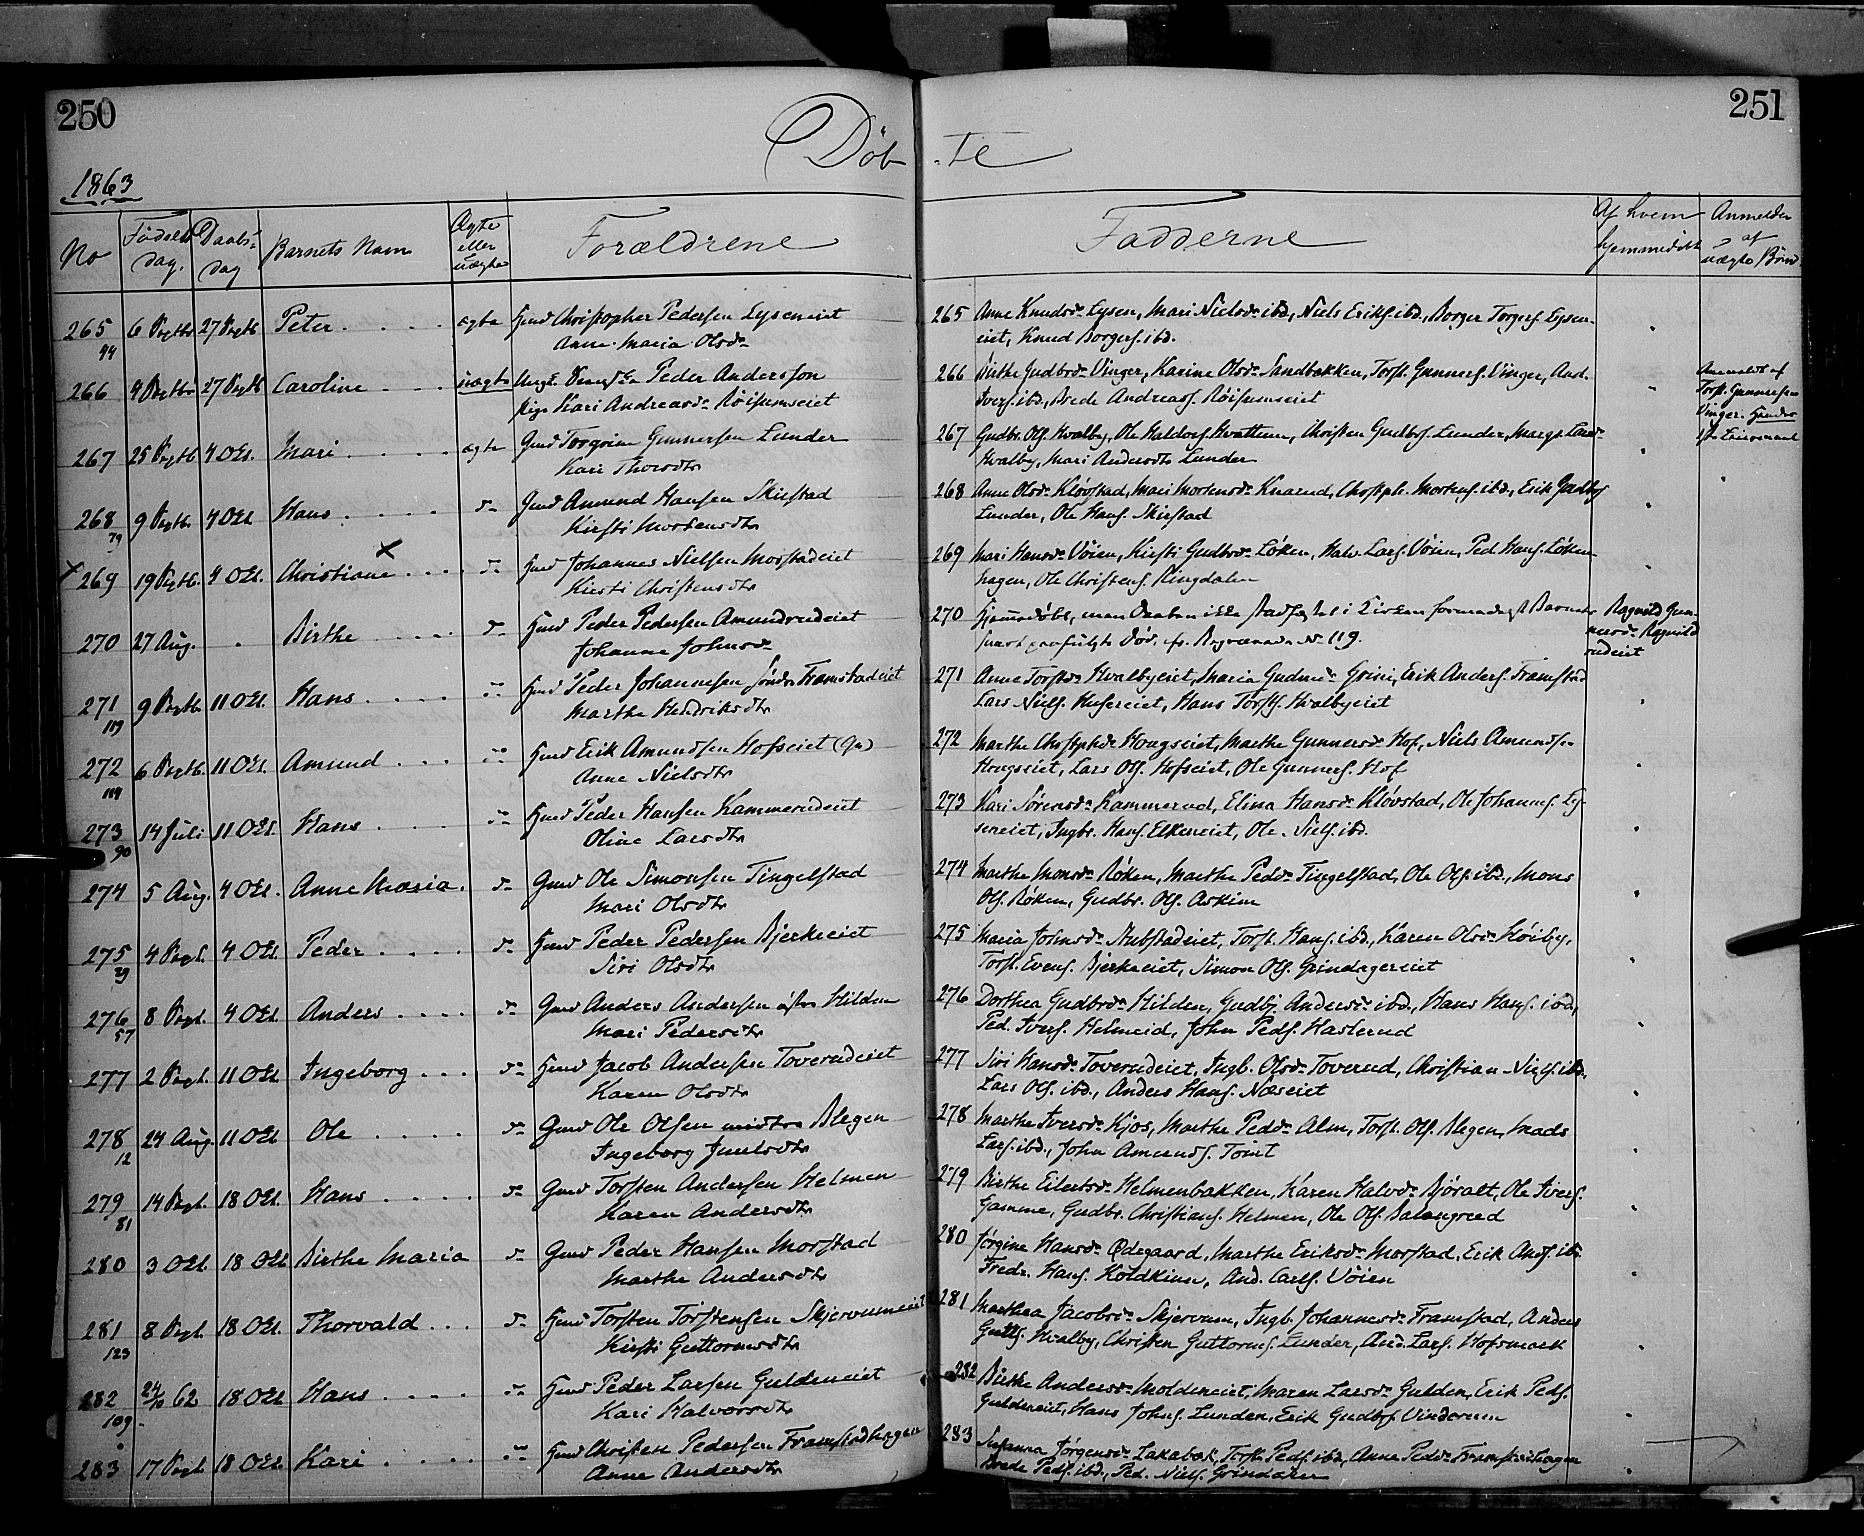 250
251
Døb - te
1863
No
Fødsels dag.
Daabs- dag
Barnets Navn
Ægte eller uægte
Forældrene
Fadderne
Af hvem hjemmedøbt
Anmelder af uægte Børn
265 6 Septbr 27 Septb Peter. ægte Hmd Christopher Pedersen Lyseneiet
44 Anne Maria Olsdr
265 Anne Knudsdr Lysen, Mari Nielsdr ibd, Niels Eriks. ibd, Borger Torgers. Lysen-
eiet, Knud Borgers. ibd.
266 4 Septbr 27 Septb Caroline uægte Ungk. Peder Andersson
Pige Kari Andreasdr Röisumseiet
266 Birthe Gudbrdr Vinger, Karine Olsdr Sandbakken, Torst. Gunners. Vinger, And.
Ivers. ibd, Brede Andreass. Röisumseiet
Anmeldt af
Torst. Gunnersen
Vinger
267 25 Septb 4 Oct. Mari ægte Gmd Torgrim Gunnersen Lunder
Kari Thorsdtr
267 Gudbr. Ols. Hvalby, Ole Haldors. Hvattum, Christen Gudbrs. Lunder, Margr. Larsdr
Hvalby, Mari Andersdtr Lunder
268 9 Septb. 4 Oct Hans do Gmd Amund Hansen Skirstad
79 Kirsti Mortensdtr
268 Anne Olsdr Klövstad, Mari Mortensdr Knarud, Chrstph. Mortens. ibd, Erik Gudbrs
Lunder, Ole Hans. Skirstad
x 269 19 Septb. 4 Oct. Christiane x do Hmd Johannes Nielsen Morstadeiet
Kirsti Christensdtr
269 Mari Hansdr Vöien, Kirsti Gudbrdr Löken, Halv. Lars. Vöien, Ped. Hans. Löken-
hagen, Ole Christens. Ringdalen
270 27 Aug. Birthe do Hmd Peder Pedersen Amundrudeiet
Johanne Johnsdr
270 Hjemmedöbt, men Daaben ikke stadfæstet i Kirken formedelst Barnets
snart paafulgte Död, cfr. Begravede No 119.
Ragnild Gun-
nersdr Ragnild
rudeiet
271 9 Septb 11 Oct. Hans do Hmd Peder Johannesen söndr Framstadeiet
119 Marthe Hendriksdtr
271 Anne Torstdr Hvalbyeiet, Maria Gudmdr Grini, Erik Anders. Framstad
Lars Niels. Huseeiet, Hans Torsts. Hvalbyeiet
272 6 Septb. 11 Oct. Amund do Hmd Erik Amundsen Hofseiet (Gr)
114 Anne Nielsdtr
272 Marthe Chrstphdr Hougseiet, Marthe Gunnersdr Hof, Niels Amundsen
Hougseiet, Lars Ols. Hofseiet, Ole Gunners. Hof
273 14 Juli 11 Oct. Hans do Hmd Peder Hansen Kammerudeiet
90 Oline Larsdtr
273 Kari Sörensdr Kammerud, Elina Hansdr Klövstad, Ole Johanns. Ly-
seneiet, Ingbr. Hans. Elkeneiet, Ole Niels. ibd.
274 5 Aug. 4 Oct. Anne Maria. do Gmd Ole Simonsen Tingelstad
Mari Olsdtr
274 Marthe Monsdr Röken, Marthe Peddr Tingelstad, Ole Ols. ibd., Mons
Ols. Röken, Gudbr. Ols. Askim
275 4 Sept. 4 Oct. Peder do Hmd Peder Pedersen Bjerkeeiet
29 Siri Olsdtr
275 Maria Johnsdr Nubstadeiet, Torst. Hans. ibd., Karen Olsdr Höiby,
Torst. Evens. Bjerkeeiet, Simon Ols. Grindagereiet
276 8 Sept. 4 Oct. Anders do Gmd Anders Andersen östre Hilden
57 Mari Pedersdtr
276 Dorthea Gudbrdr Hilden, Gudbj. Andersdr ibd., Hans Hans. ibd,
Ped. Ivers. Helmeid, John Peds. Haslerud
277 2 Sept. 11 Oct Ingeborg do Hmd Jacob Andersen Toverudeiet
Karen Olsdtr
277 Siri Hansdr Toverudeiet, Ingb. Olsdr Toverud, Christian Niels. ibd.
Lars Ols. ibd., Anders Hans. Næseiet
278 24 Aug. 11 Oct Ole do Gmd Ole Olsen midtre Blegen
12 Ingeborg Juulsdtr
278 Marthe Iversdr Kjos, Marthe Peddr Alm, Torst. Ols. Blegen, Mads
Lars. ibd., John Amunds. Tömt
279 14 Sept. 18 Oct. Hans do Gmd Torsten Andersen Helmen
81 Karen Andersdtr
279 Birthe Eilertsdr Helmenbakken, Karen Halvdr Björalt, Ole Ivers.
Gamme, Gudbr. Christians. Helmen, Ole Ols. Balangrud
280 3 Oct. 18 Oct Birthe Maria do Gmd Peder Hansen Morstad
Marthe Andersdtr
280 Jörgine Hansdr Ødegaard, Marthe Eriksdr Morstad, Erik Ands. ibd
Fredr. Hans. Koldkinn, And. Carls. Vöien
281 8 Sept. 18 Oct. Thorvald do Hmd Torsten Torstensen Skjervumeiet
123 Kirsti Guttormsdtr
281 Marthea Jacobsdr Skjervum, Ingb. Johannesdr Framstad, Anders
Gutts. Hvalby, Christen Guttorms. Lunder, And. Lars. Hofsmark
282 24/10 62 18 Oct. Hans do Hmd Peder Larsen Guldeneiet
109 Kari Halvorsdtr
282 Birthe Andersdr Moldeneiet, Maren Larsdr Gulden, Erik Peds.
Guldeneiet, Hans Johns. Lunden, Erik Gudbrs. Vinderum
283 17 Sept 18 Oct. Kari do Hmd Christen Pedersen Framstadhagen
Anne Andersdtr
283 Susanna Jörgensdr Lakabæk, Torst. Peds. ibd, Anne Peddr Framstadhagen
Brede Peds. ibd., Ped. Niels. Grindaker